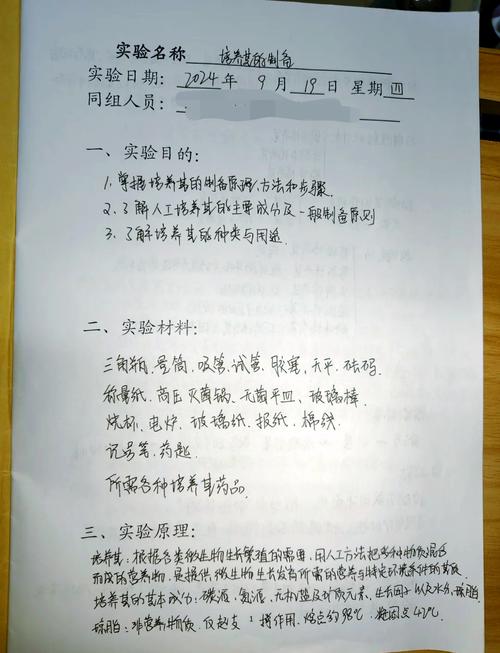 实验名称 培养基的制备
实验日期: 2024年 9月 19日 星期四
同组人员:
一、实验目的:
1、掌握培养基的制备原理、方法和步骤
2、了解人工培养基的主要成分及一般制备原则
3、了解培养基的种类与用途.
二、实验材料:
三角瓶、量筒、吸管、试管、胶塞、天平、砝码、
称量纸、高压灭菌锅、无菌平皿、玻璃棒、
烧杯、电炉、玻璃纸、报纸、棉线、
记号笔、药匙.
所需各种培养基药品.
三、实验原理:
培养基: 根据各类微生物生长繁殖的需要, 用人工方法把多种物质混合
而成的营养物, 是提供微生物生长发育所需的营养与特定环境条件的基质
培养基的基本成分: 碳源、氮源、无机盐及矿质元素、生长因子以及水分、琼脂
琼脂: 非营养物质, 仅起支撑作用, 熔点约98℃, 凝固点42℃